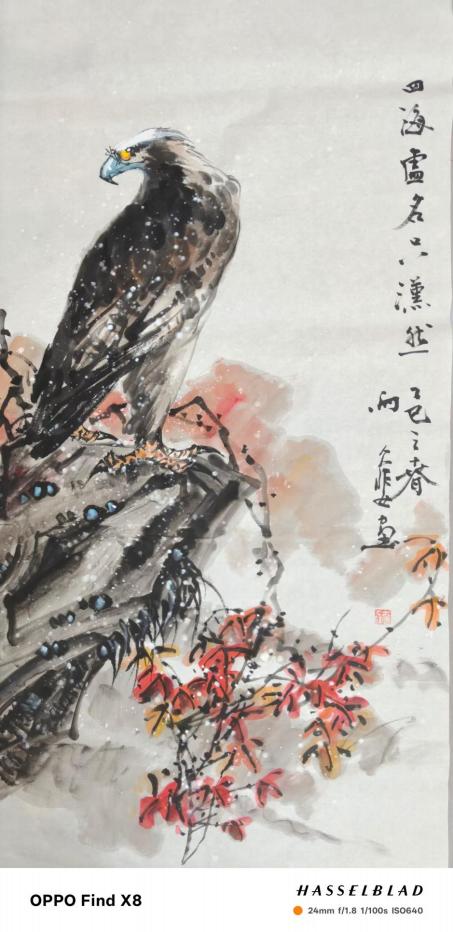 四海虚名只汗然
乙巳之春
雨
画
OPPO Find X8
HASSELBLAD
24mm f/1.8 1/100s ISO640